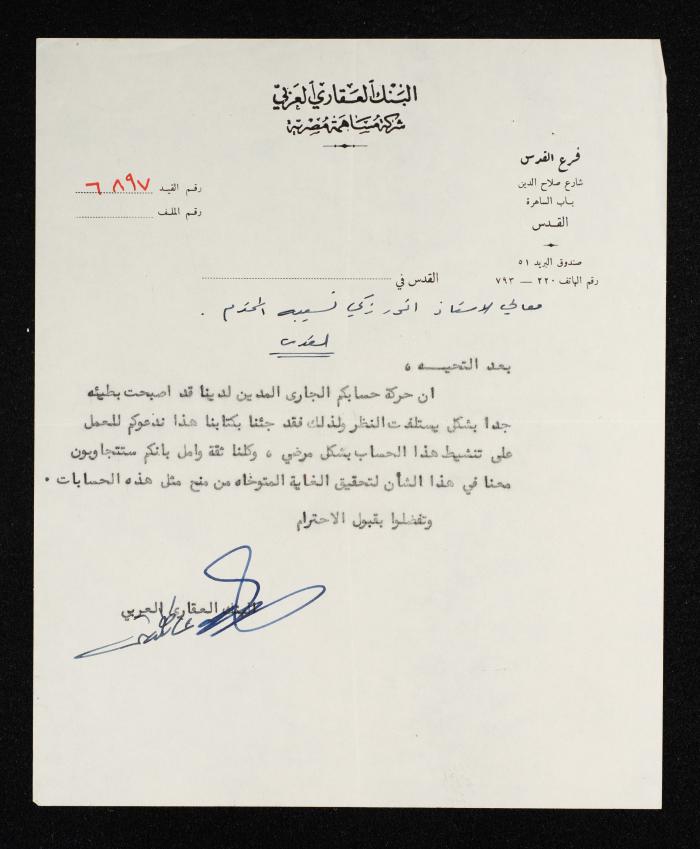 البنك العقاري العربي
شركة مساهمة مصرية
فرع القدس
شارع صلاح الدين
باب الساهرة
القدس
صندوق البريد ٥١
رقم الهاتف ٢٢٠ — ٧٩٣
رقم القيد ٦٨٩٧
رقم الملف
القدس في
معالي الاستاذ انور زكي نسيبه المحترم .
القدس
بعد التحيــه ،
ان حركة حسابكم الجارى المدين لدينا قد اصبحت بطيئه
جدا بشكل يستلفت النظر ولذلك فقد جئنا بكتابنا هذا ندعوكم للعمل
على تنشيط هذا الحساب بشكل مرضي ، وكلنا ثقة وامل بانكم ستتجاوبون
معنا في هذا الشأن لتحقيق الغاية المتوخاه من منح مثل هذه الحسابات .
وتفضلوا بقبول الاحترام
البنك العقاري العربي